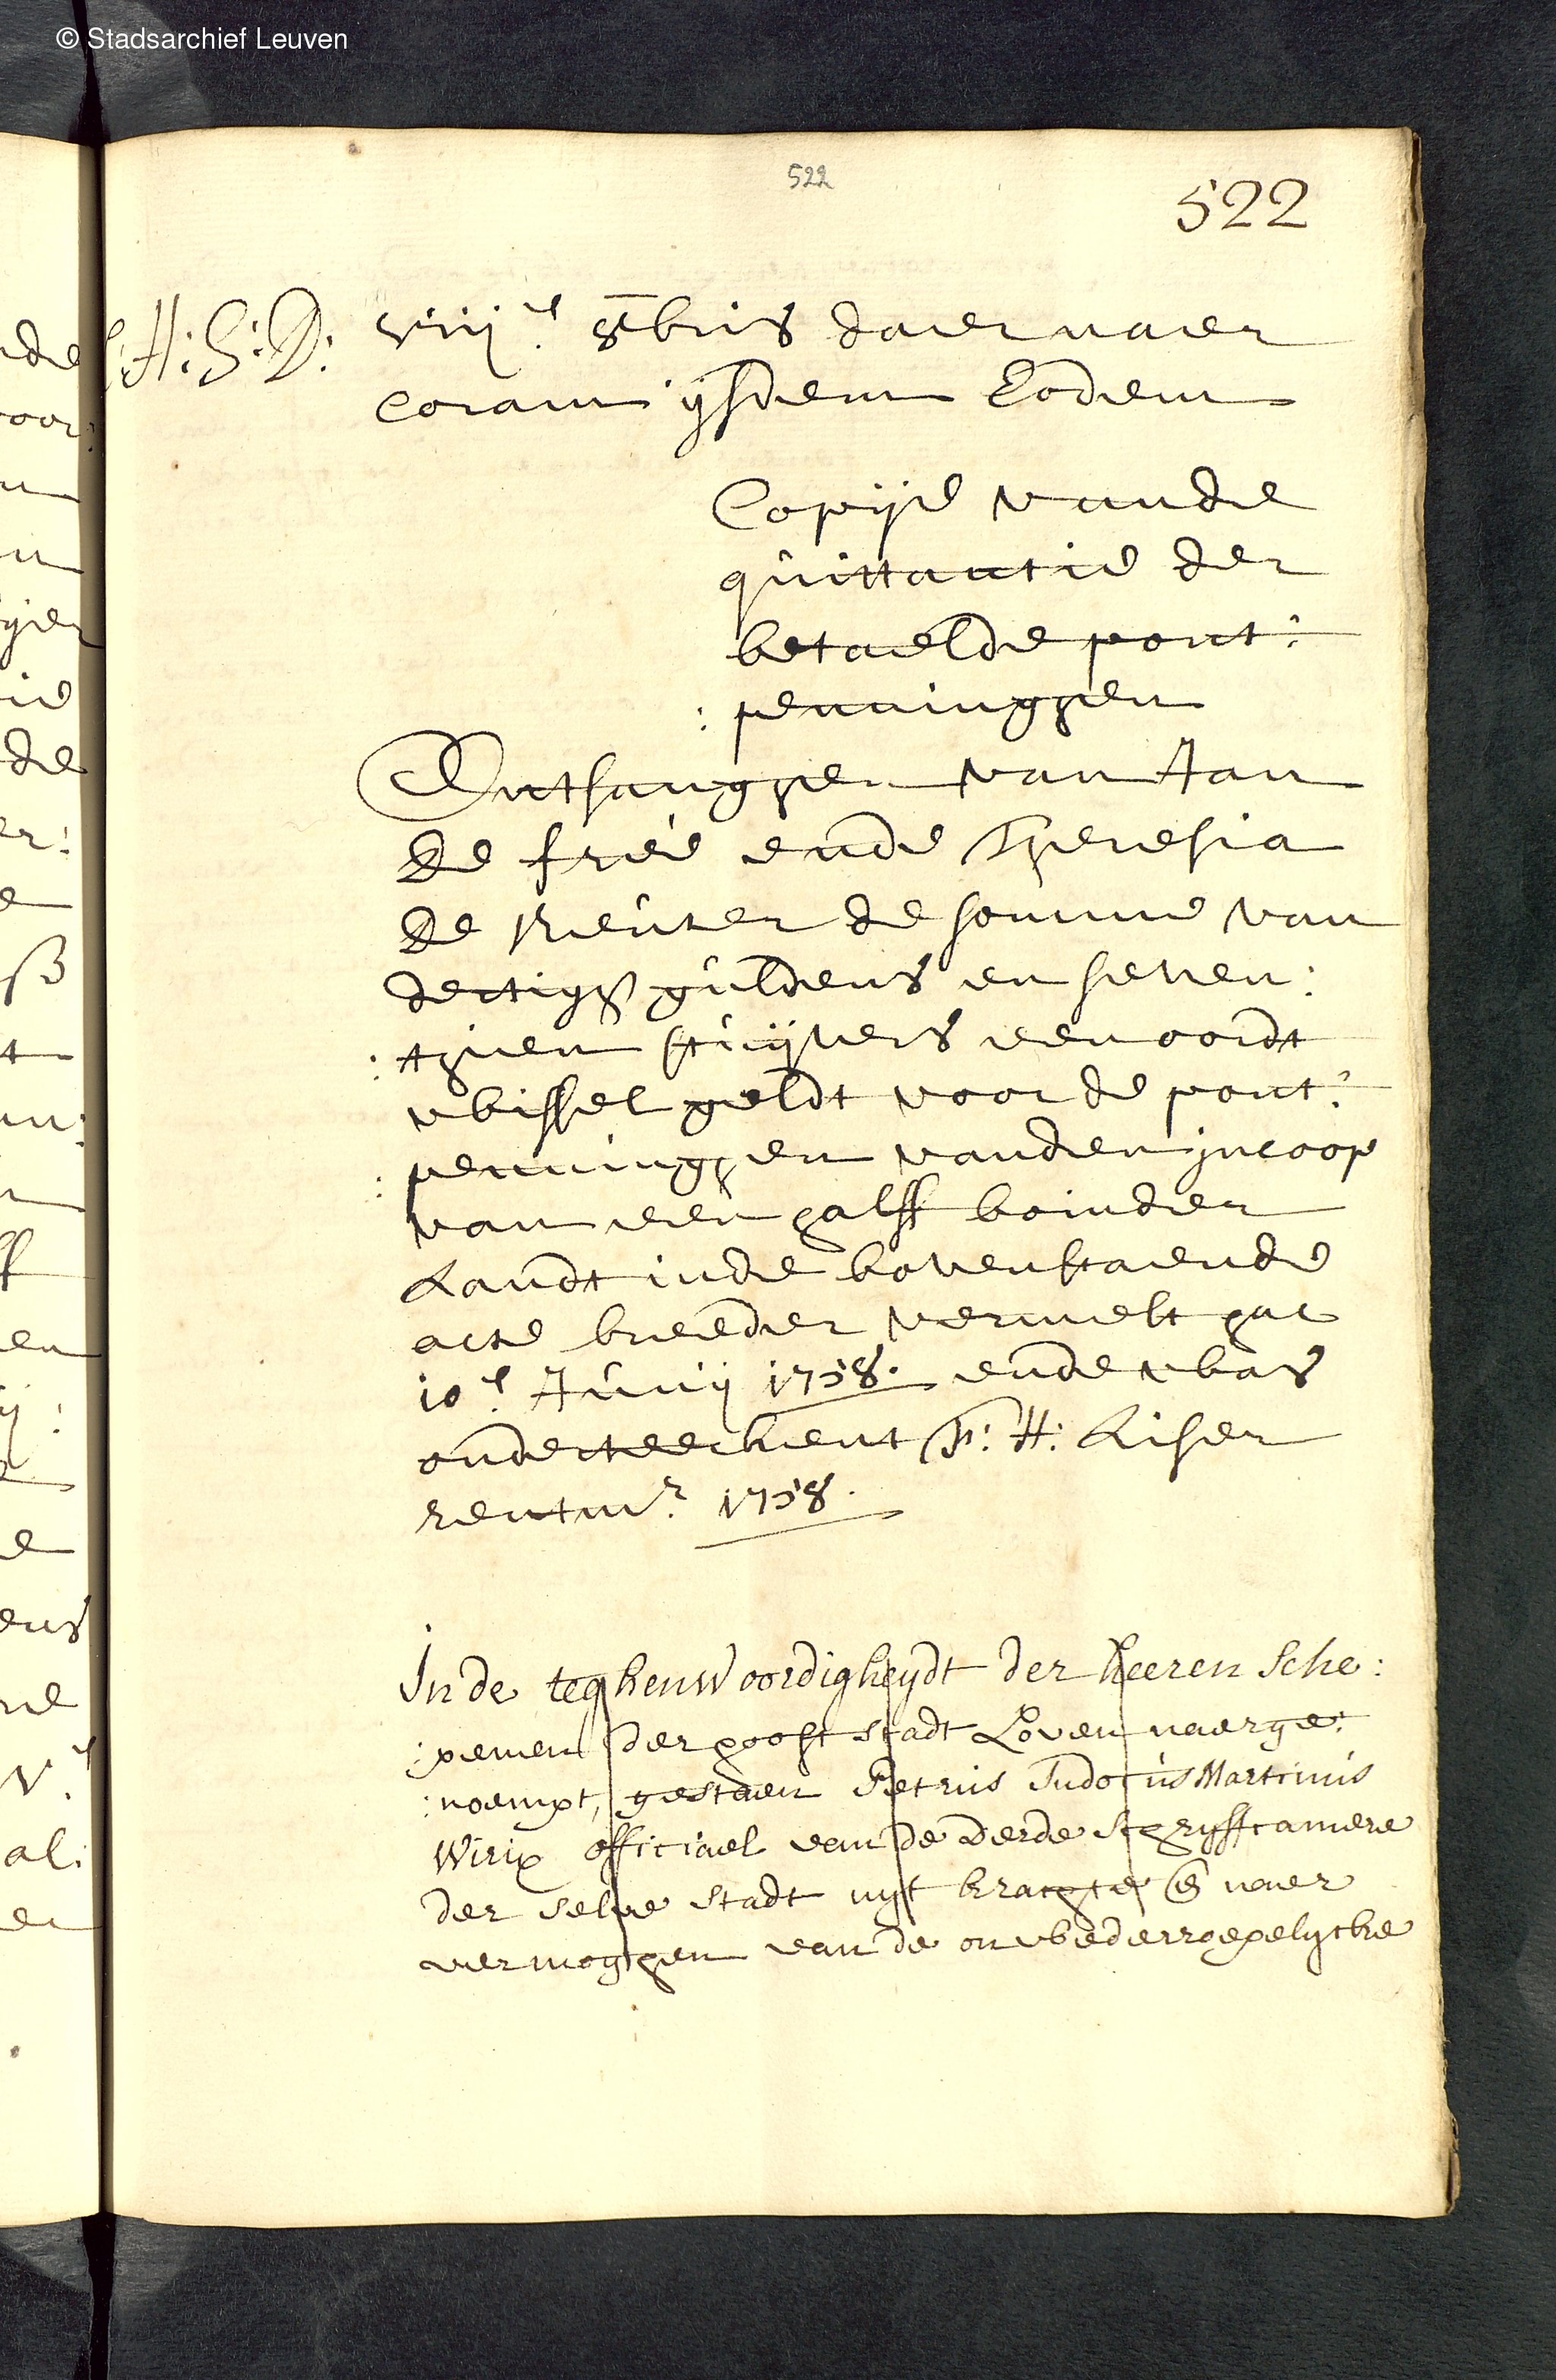 © Stadsarchief Leuven
522
522
H: S: D:
viij.e 8bris daer naer
coram ijsdem Eodem
Copije vande
quittantie der
betaelde pont:
: penninghen
Ontfanghen van Jan
de free ende Theresia
de Keuser de somme van
dertigh guldens en seven:
: thien stuijvers een oordt
wissel geldt voor de pont:
: penninghen vanden incoop
van een halff boinder
Landt inde bovenstaende
acte breeder vermelt hac
10.e Junij 1758. ende was
onderteekent F: H: Liser
rentmr. 1758.
In de teghenwoordigheydt der heeren Sche:
:penen der hooft stadt Loven naerge:
:noempt, gestaen Petrus Judocus Martinus
Wirix officiael van de derde schryffcamere
der selve stadt uyt krachte en naer
vermoghen van de onwederroepelycke